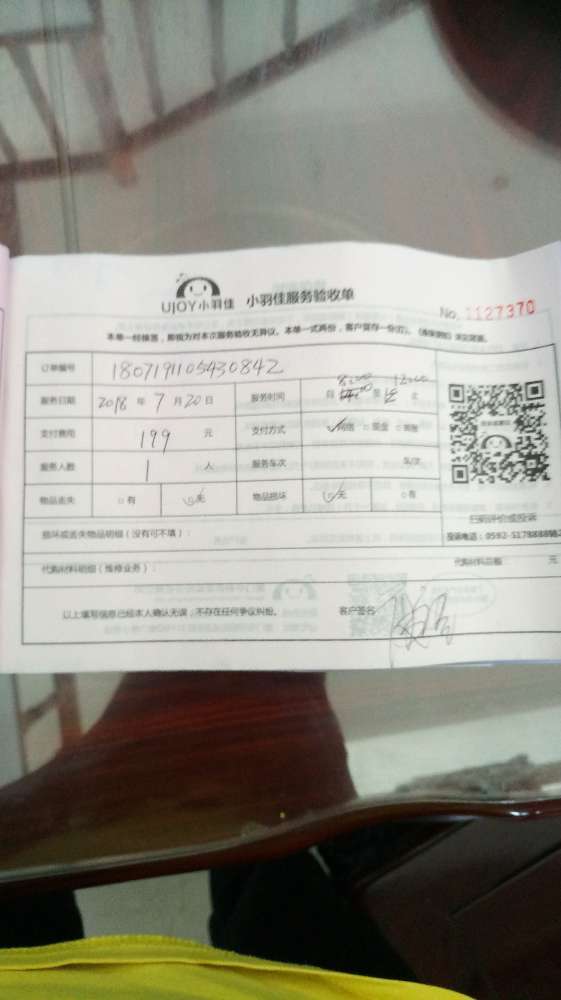 UJOY小羽佳 小羽佳服务验收单
No. 1127370
本单一经接签，即视为对本次服务验收无异议。本单一式两份，客户留存一份
订单编号 1807191105430842
服务日期 2018 年 7 月 20 日 服务时间 自 8:00 至 12:00 止
支付费用 199 元 支付方式 ✓网络 □现金 □
服务人数 1 人 服务车次 车/次
物品丢失 □有 ✓无 物品损坏 ✓无 □有
扫码评价或投诉
损坏或丢失物品明细（没有可不填）： 投诉电话：0592-517888
代购材料明细（维修业务）： 代购材料总额： 元
以上填写信息已经本人确认无误，不存在任何争议纠纷。 客户签名